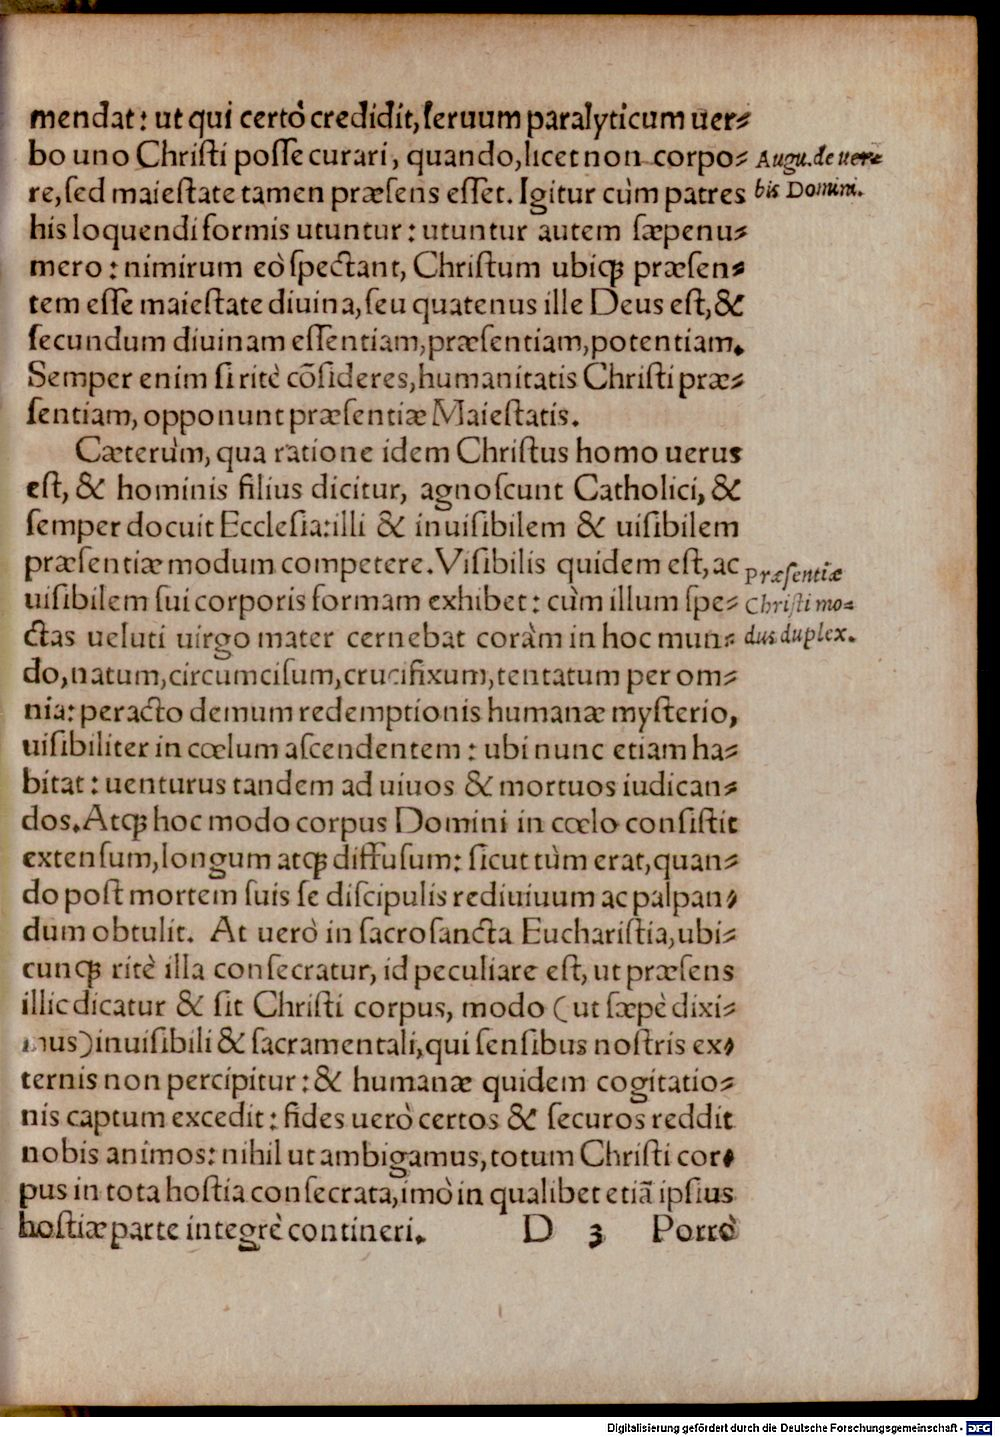 mendat: ut qui certò credidit, ſeruum paralyticum uer⸗
bo uno Chriſti poſſe curari, quando, licet non corpo⸗
re, ſed maieſtate tamen præſens eſſet. Igitur cùm patres
Augu. de uer⸗
bis Domini.
his loquendi formis utuntur: utuntur autem ſæpenu⸗
mero: nimirum eò ſpectant, Chriſtum ubiqꝫ præſen⸗
tem eſſe maieſtate diuina, ſeu quatenus ille Deus eſt, &
ſecundum diuinam eſſentiam, præſentiam, potentiam.
Semper enim ſi ritè cõſideres, humanitatis Chriſti præ⸗
ſentiam, opponunt præſentiæ Maieſtatis.
Cæterùm, qua ratione idem Chriſtus homo uerus
eſt, & hominis filius dicitur, agnoſcunt Catholici, &
ſemper docuit Eccleſia: illi & inuiſibilem & uiſibilem
præſentiæ modum competere. Viſibilis quidem eſt, ac
uiſibilem ſui corporis formam exhibet: cùm illum ſpe⸗
ctas ueluti uirgo mater cernebat coràm in hoc mun⸗
Præſentiæ
Chriſti mo⸗
dus duplex.
do, natum, circumciſum, crucifixum, tentatum per om⸗
nia: peracto demum redemptionis humanæ myſterio,
uiſibiliter in cœlum aſcendentem: ubi nunc etiam ha⸗
bitat: uenturus tandem ad uiuos & mortuos iudican⸗
dos. Atqꝫ hoc modo corpus Domini in cœlo conſiſtit
extenſum, longum atqꝫ diffuſum: ſicut tùm erat, quan⸗
do poſt mortem ſuis ſe diſcipulis rediuiuum ac palpan⸗
dum obtulit. At uerò in ſacroſancta Euchariſtia, ubi⸗
cunqꝫ ritè illa conſecratur, id peculiare eſt, ut præſens
illic dicatur & ſit Chriſti corpus, modo (ut ſæpè dixi⸗
mus) inuiſibili & ſacramentali, qui ſenſibus noſtris ex⸗
ternis non percipitur: & humanæ quidem cogitatio⸗
nis captum excedit: fides uerò certos & ſecuros reddit
nobis animos: nihil ut ambigamus, totum Chriſti cor⸗
pus in tota hoſtia conſecrata, imò in qualibet etiã ipſius
hoſtiæ parte integrè contineri.
D 3 Porrò
Digitalisierung gefördert durch die Deutsche Forschungsgemeinschaft - DFG